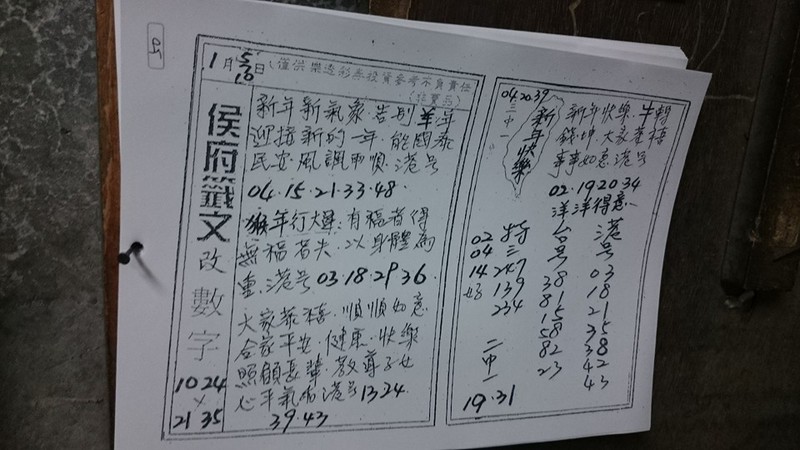 1月5/10日 僅供樂透彩券投資參考不負責任
(非賣品)
侯府籤文改數字
10 24
21 35
新年新氣象告別羊年
迎接新的一年能國泰
民安風調雨順港号
04·15·21·33·48·
猴年行大運:有福者得
無福者失·以身體為
重·港号03·18·29 36·
大家恭禧·順順如意
合家平安·健康·快樂
照顧長輩·教導子女
心平氣和港号1324
39·43
04.20.39
三中一
新年快樂
新年快樂牛轉
錢坤大家恭禧
事事如意港号
02·19 20 34
洋洋得意
港号
03
18
21
35
38
42
43
台号
38
81
15
58
82
23
特三
247
139
234
02
04
14
好
二中一
19·31